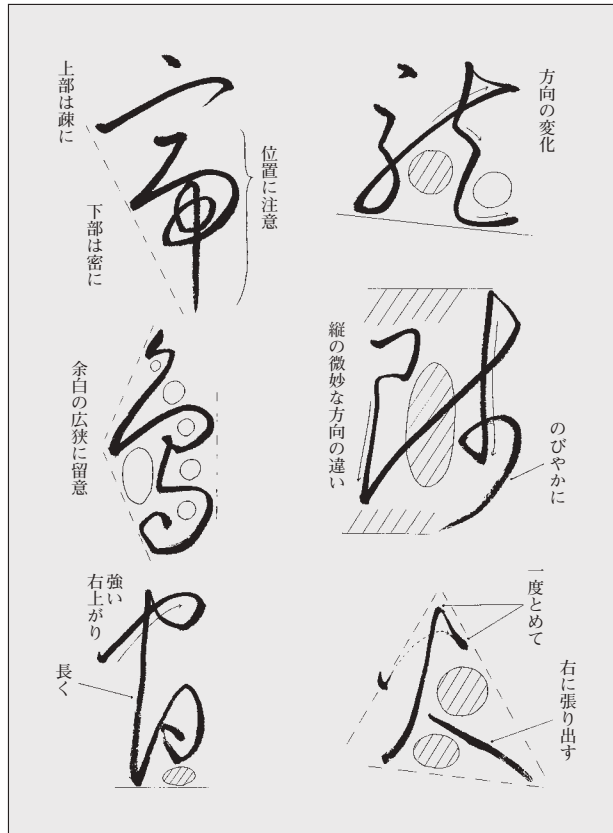 龍
方向の変化
師
縦の微妙な方向の違い
のびやかに
火
一度とめて
右に張り出す
帝
位置に注意
上部は疎に
下部は密に
鳥
余白の広狭に留意
官
強い
右上がり
長く